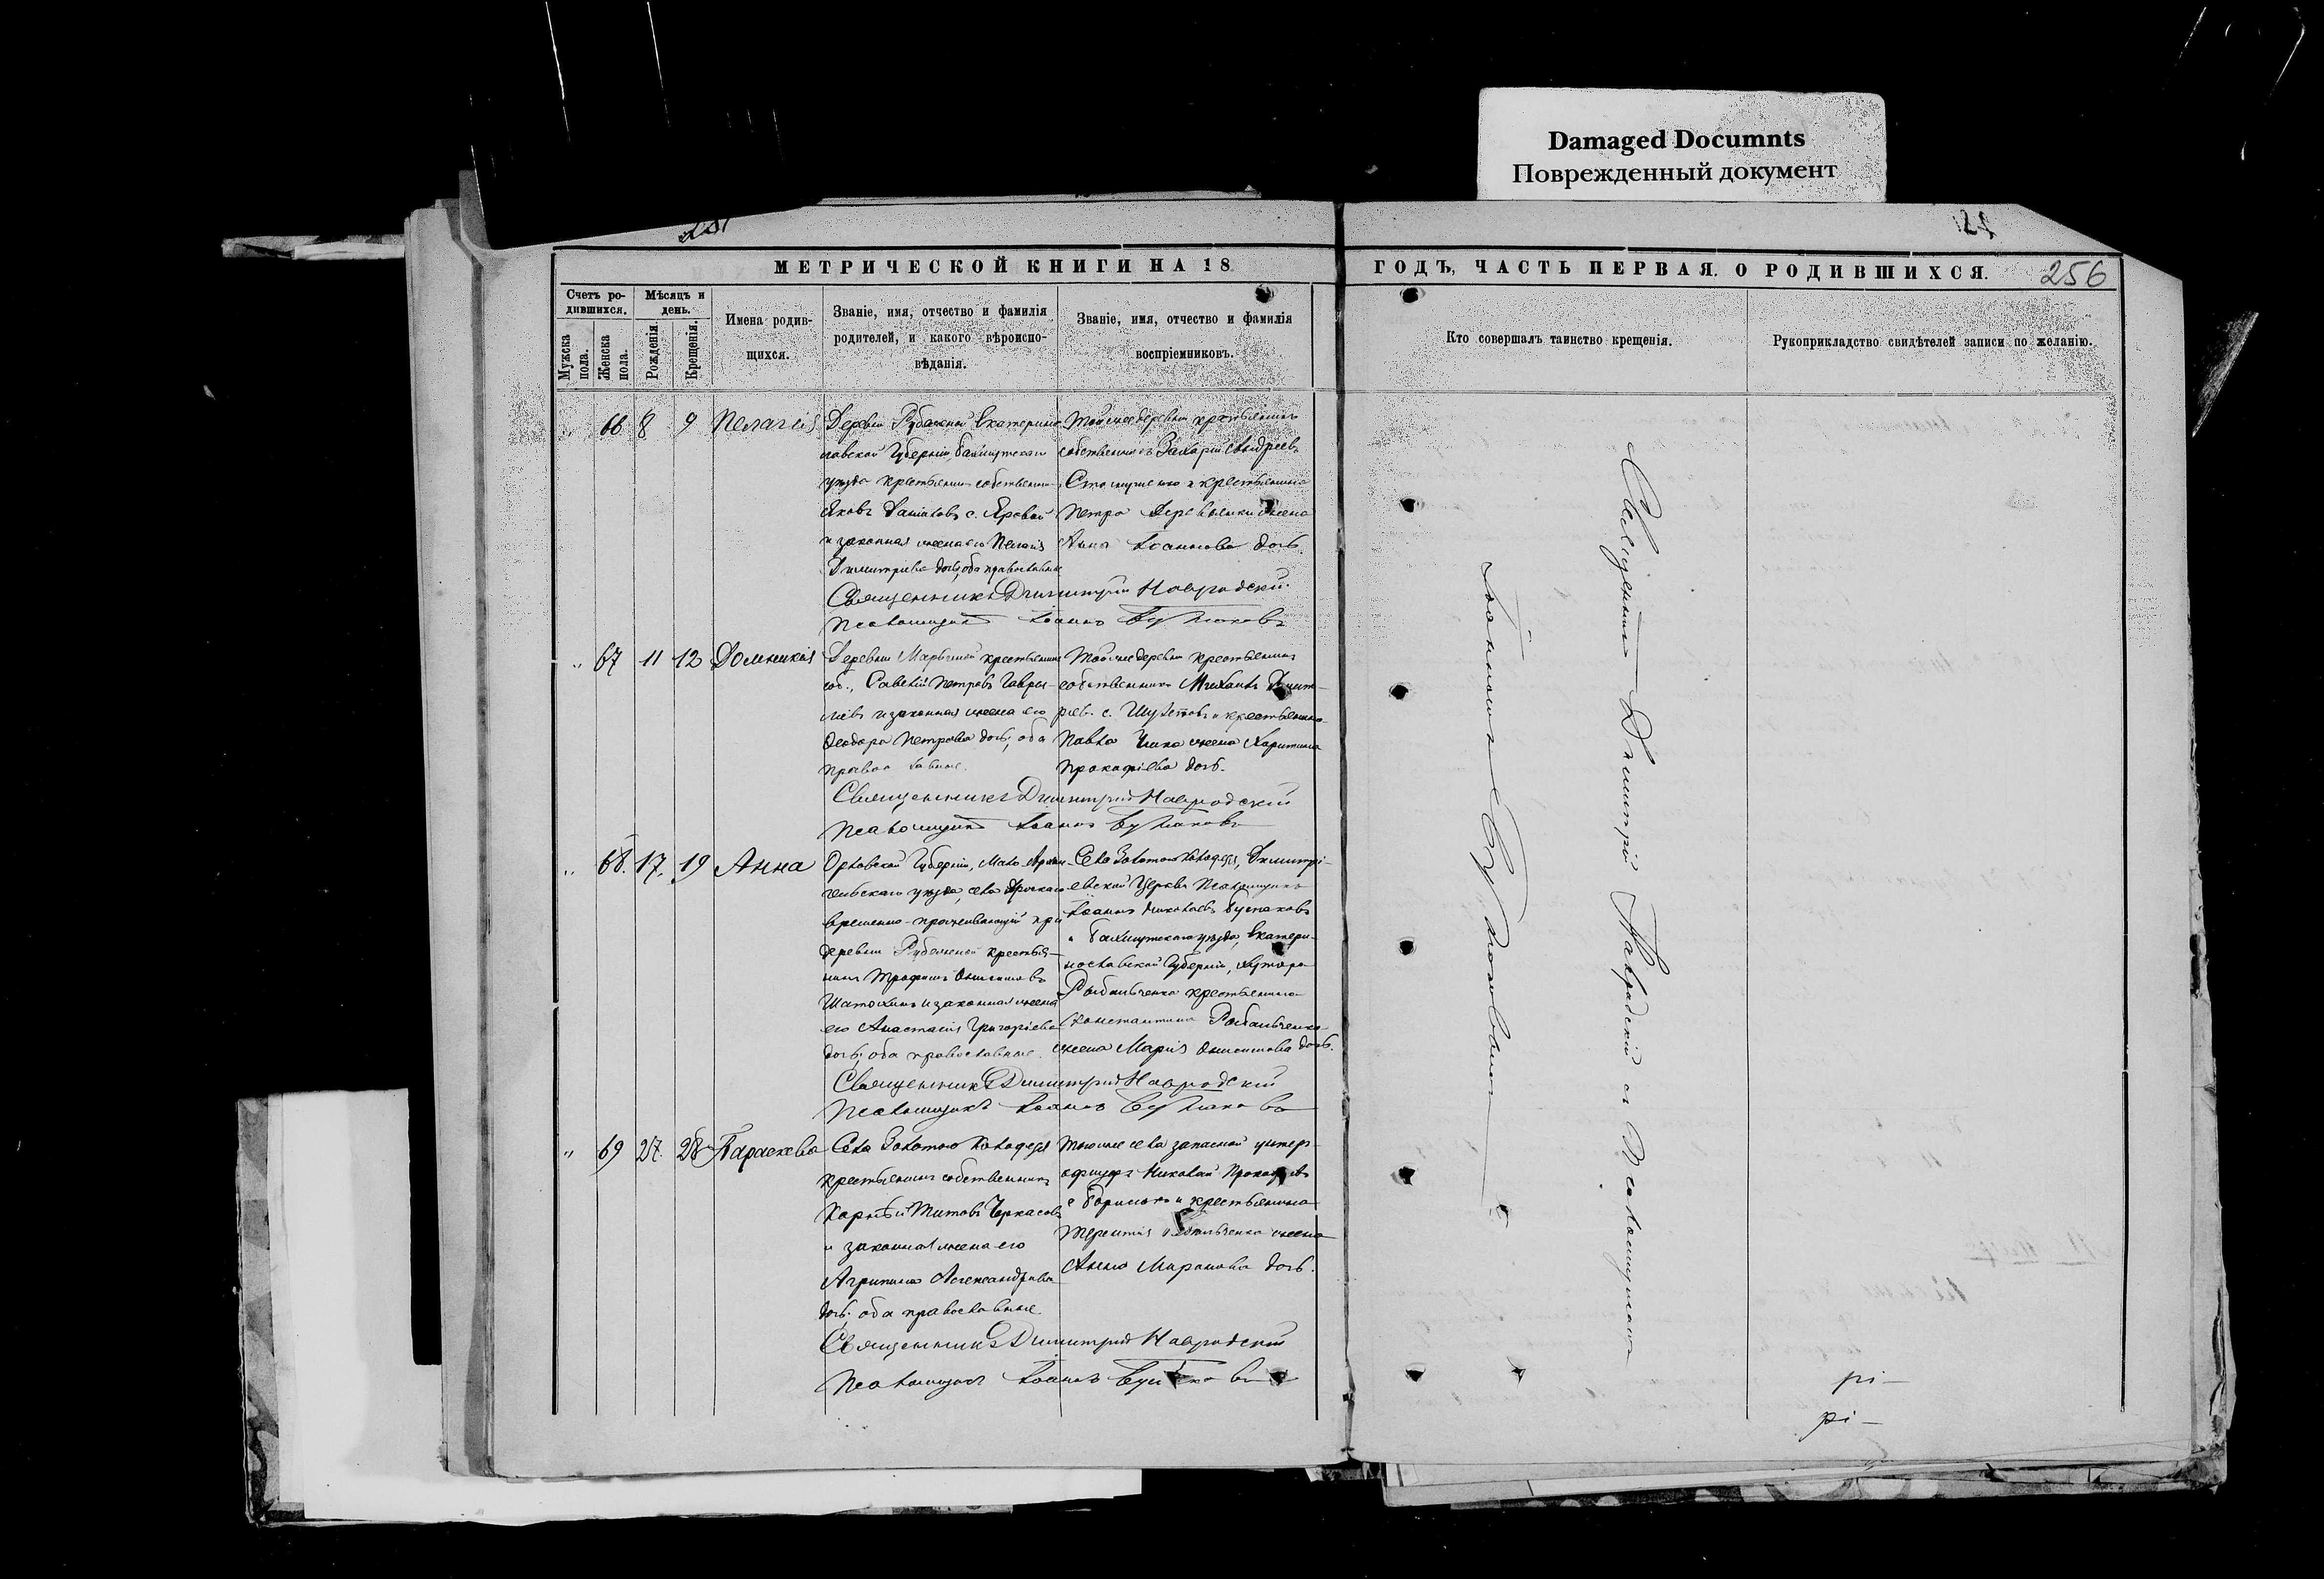 Damaged Documnts
Поврежденный документ
МЕТРИЧЕСКОЙ КНИГИ НА 18
ГОДЪ, ЧАСТЬ ПЕРВАЯ. О РОДИВШИХСЯ.
256
Счетъ ро-
дившихся.
Мужска пола.
Женска пола.
Мѣсяцъ и
день.
Рожденія.
Крещенія.
Имена родив-
шихся.
Званіе, имя, отчество и фамилія
родителей, и какого вѣроиспо-
вѣданія.
Званіе, имя, отчество и фамилія
воспріемниковъ.
Кто совершалъ таинство крещенія.
Рукоприкладство свидѣтелей записи по желанію.
66 8 9 Пелагія
Деревни Рубежной Екатерино
славской Губерніи, Бахмутскаго
уѣзда крестьянинъ собственникъ
Яковъ с. Яровой
и законная жена его Пелагія
Димитріева дочь, оба православные
Тойже деревни крестьянинъ
собственникъ Захарій Андреевъ
и крестьянина
Петра жена
Анна Іоаннова дочь.
Священникъ Димитрій Навродскій
Псаломщикъ Іоаннъ Бутаковъ
67 11 12 Домникія
Деревни крестьянинъ
соб., Савелій Петровъ Гаври-
ловъ и законная жена его
Ѳеодора Петрова дочь, оба
православные.
Тойже деревни крестьянинъ
собственникъ Михаилъ Димит-
ріев. с. и крестьянина
Павла жена Харитина
Прокофіева дочь.
Священникъ Димитрій Навродскій
Псаломщикъ Іоаннъ Бутаковъ
68. 17. 19 Анна
Орловской Губерніи, Мало-Архан-
гельскаго уѣзда, села
временно-проживающій при
деревни Рубежной крестья-
нинъ Трофимъ Онисимовъ
Шатохинъ и законная жена
его Анастасія Григоріева
дочь, оба православные.
Села Золотого Колодезя, Димитрі-
евской Церкви Псаломщикъ
Іоаннъ Николаевъ Бутаковъ
и Бахмутскаго уѣзда, Екатери-
нославской Губерніи, хутора
Рыбальченка крестьянина
Константина Рыбальченка
жена Марія Онисимова дочь.
Священникъ Димитрій Навродскій
Псаломщикъ Іоаннъ Бутаковъ
69 27. 28 Параскева
Села Золотого Колодезя
крестьянинъ собственникъ
Корнѣй Титовъ Черкасовъ
и законная жена его
Агрипина Александрова
дочь, оба православные.
Тогоже села запасной унтеръ-
офицеръ Николай Прокофіевъ
с. и крестьянина
Терентія жена
Анна Миронова дочь.
Священникъ Димитрій Навродскій
Псаломщикъ Іоаннъ Бутаковъ
Священникъ Димитрій Навродскій съ Псаломщикомъ
Іоанномъ Бутаковымъ